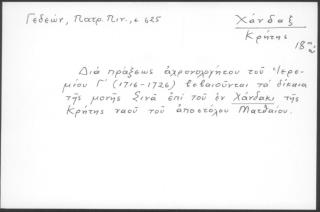 Γεδεών, Πατρ. Πιν., σ 625
Χάνδαξ
Κρήτης
18
Διά πράξεως ἀχρονολογήτου τοῦ Ἱερε-
μίου Γ΄ (1716-1726) βεβαιοῦνται τά δίκαια
τῆς μονῆς Σινᾶ ἐπί τοῦ ἐν Χάνδακι τῆς
Κρήτης ναοῦ τοῦ ἀποστόλου Ματθαίου.